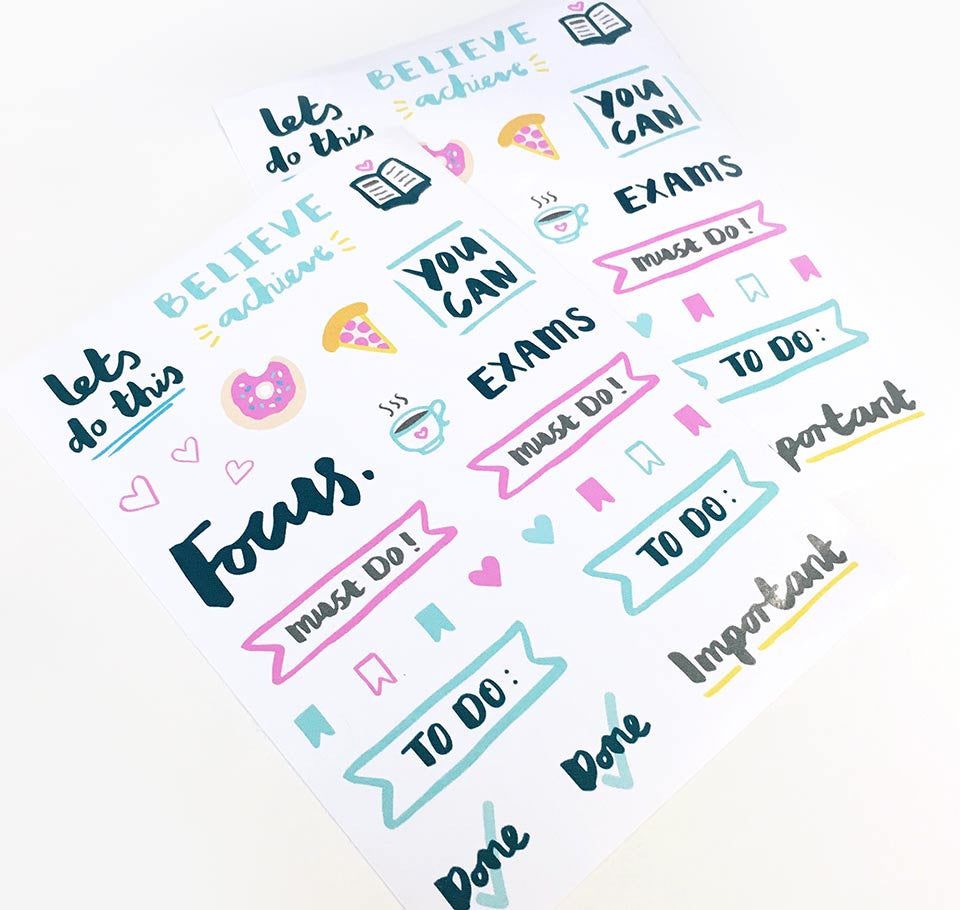 BELIEVE
achieve
lets
do this
YOU
CAN
EXAMS
must Do!
TO DO:
portant
BELIEVE
achieve
lets
do this
YOU
CAN
EXAMS
must Do!
Focus.
must Do!
TO DO:
Important
TO DO:
Done
Done